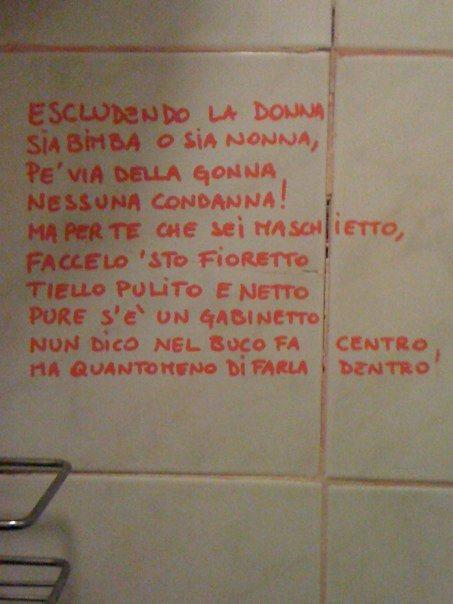 ESCLUDENDO LA DONNA
SIA BIMBA O SIA NONNA,
PE' VIA DELLA GONNA
NESSUNA CONDANNA!
MA PER TE CHE SEI MASCHIETTO,
FACCELO 'STO FIORETTO
TIELLO PULITO E NETTO
PURE S'È UN GABINETTO
NUN DICO NEL BUCO FA CENTRO,
MA QUANTOMENO DI FARLA DENTRO!